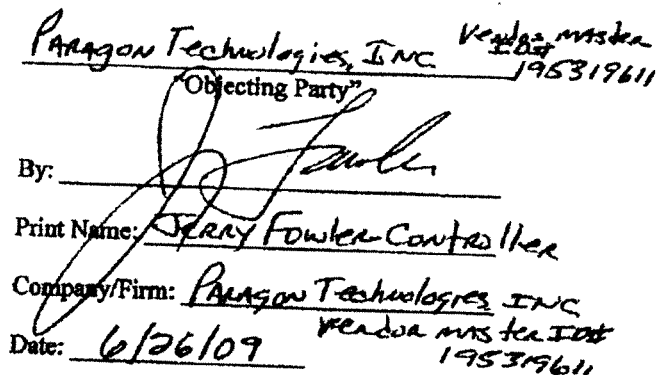 PARAGON Technologies, INC Vendor master
ID#
195319611
"Objecting Party"
By: J Fowler
Print Name: JERRY FOWLER-CONTROLLER
Company/Firm: PARAGON Technologies INC
Vendor master ID#
Date: 6/26/09 195319611